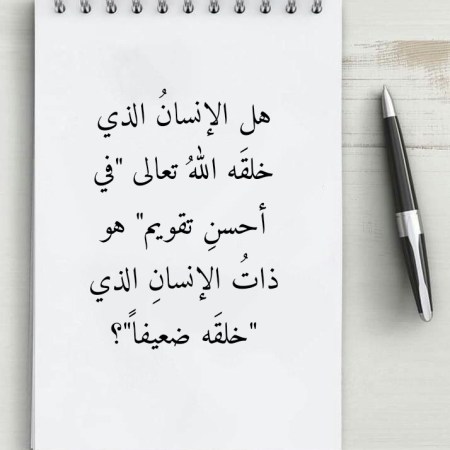 هل الإنسانُ الذي
خلقَه اللهُ تعالى "في
أحسنِ تقويم" هو
ذاتُ الإنسانِ الذي
"خلقَه ضعيفاً"؟